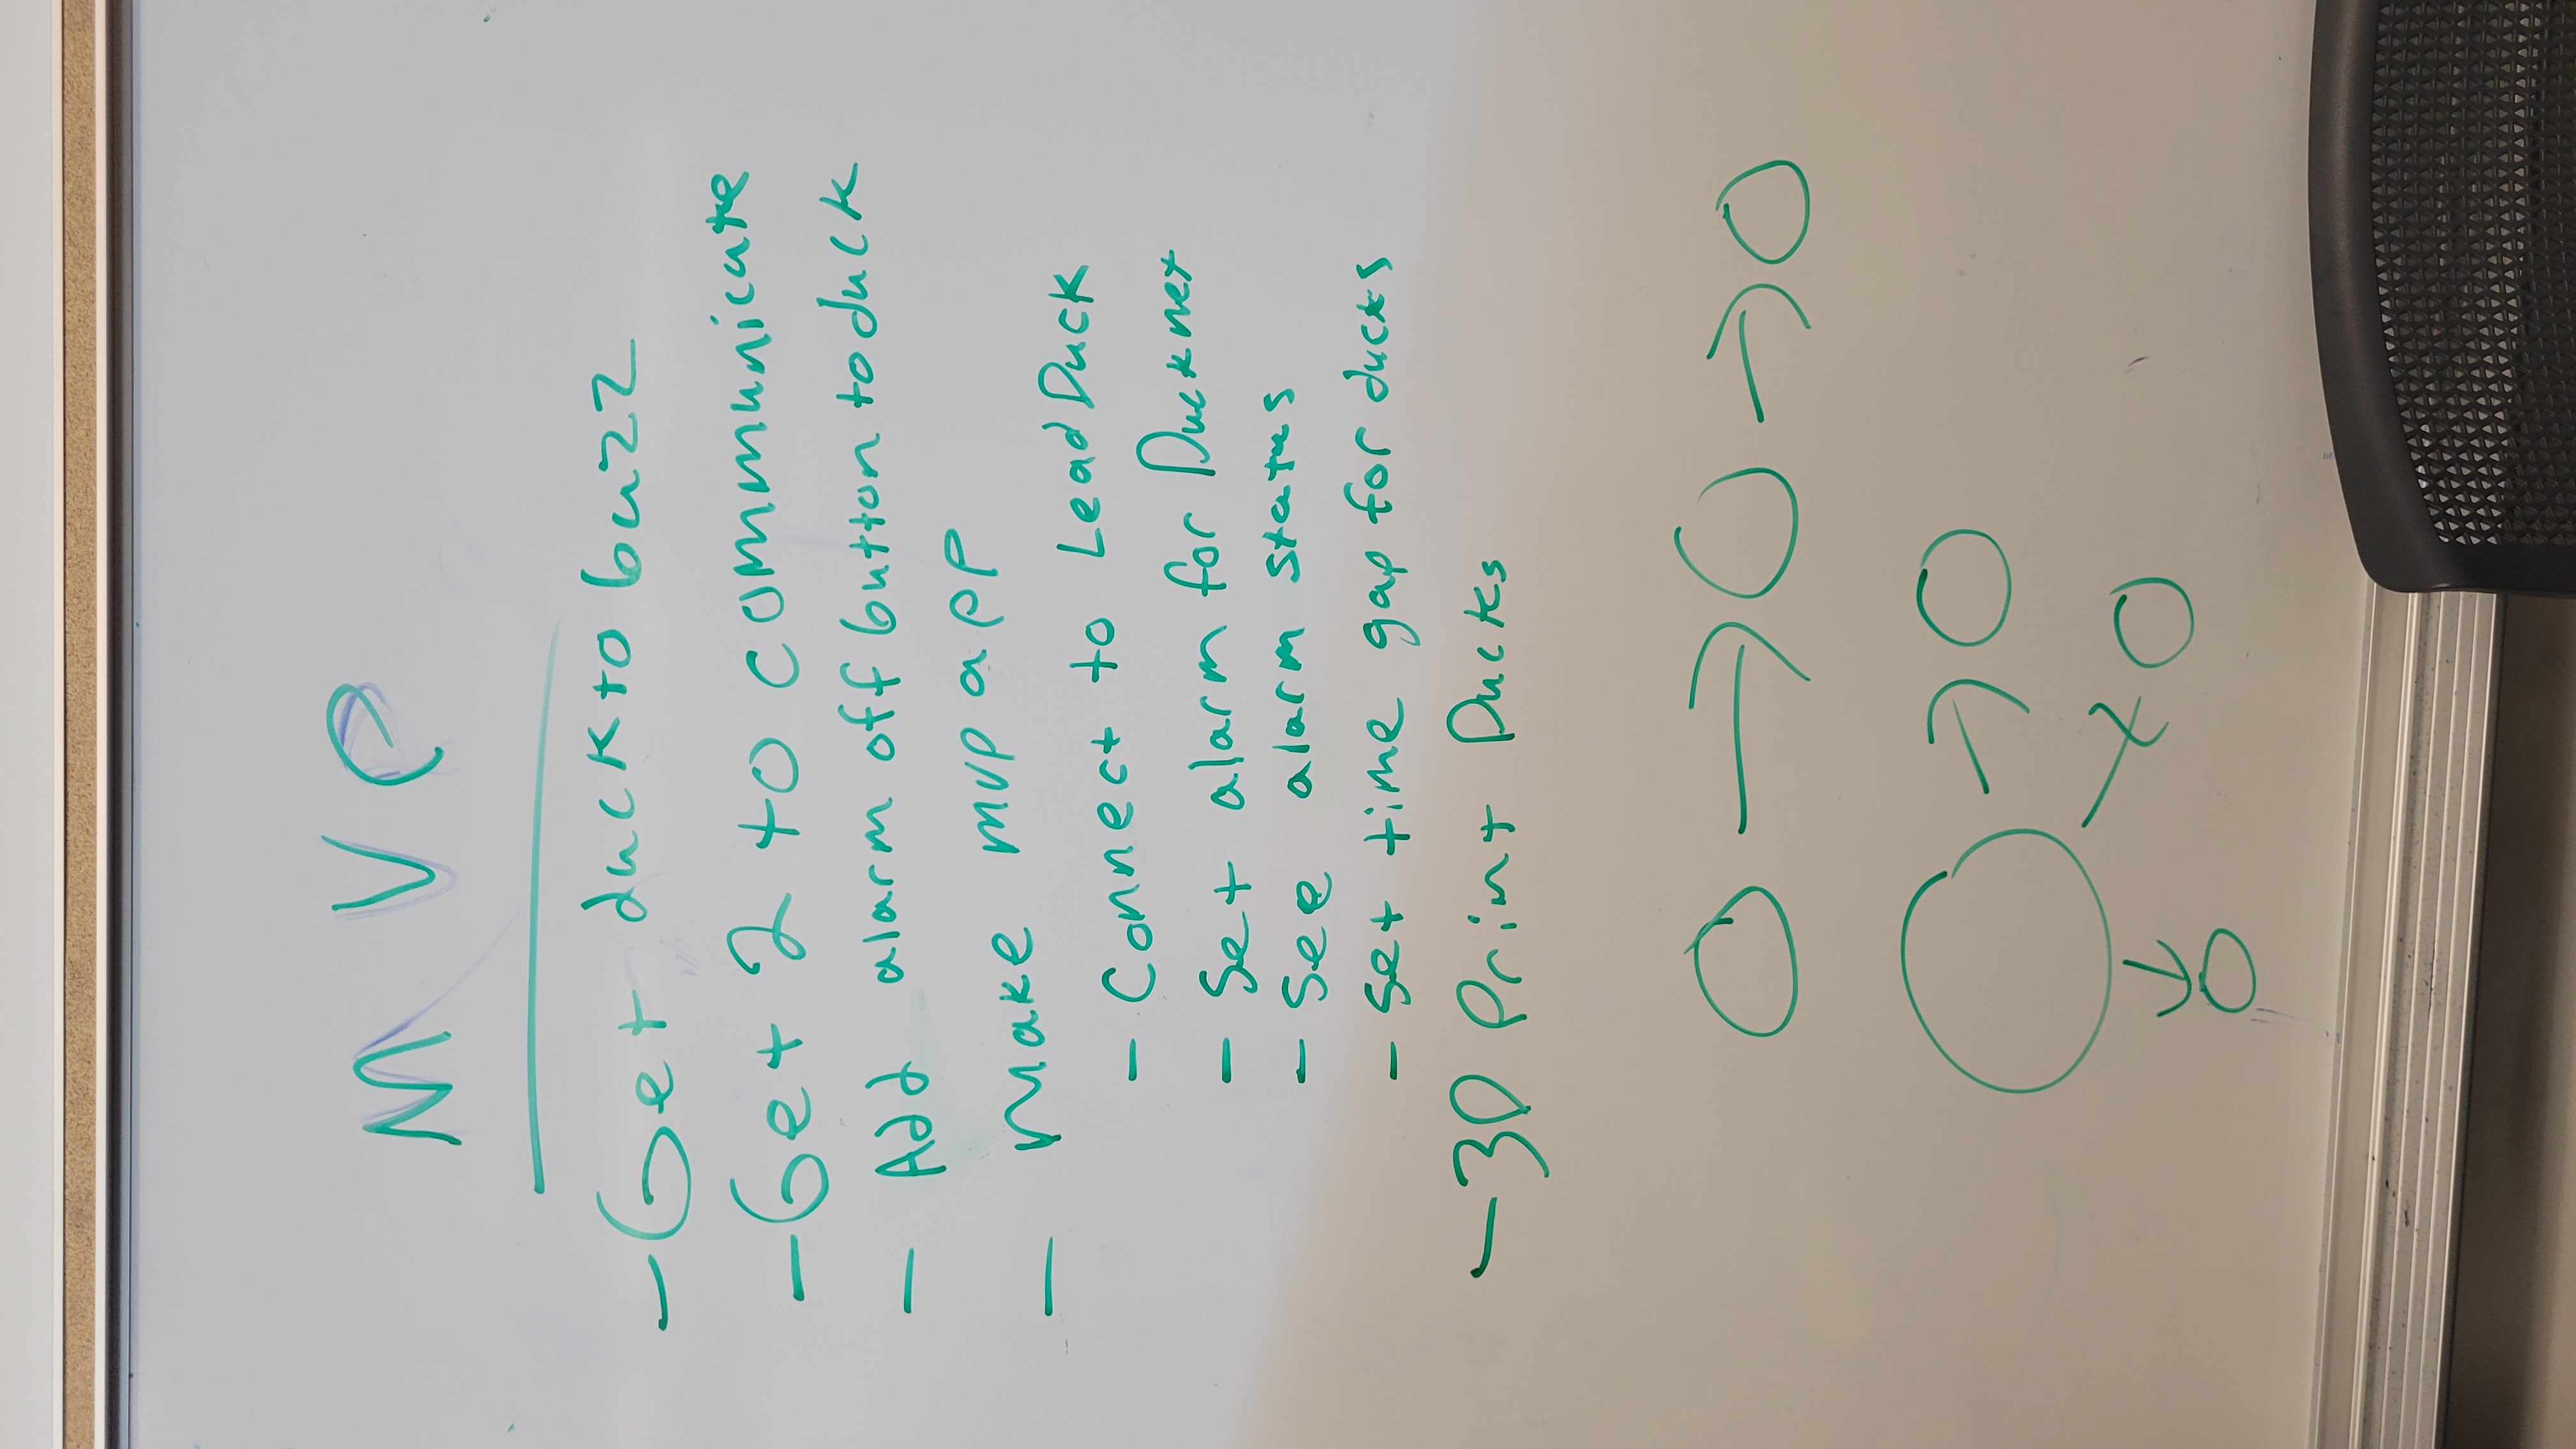 MVP
- Get duck to buzz
- Get 2 to communicate
- Add alarm off button to duck
- make mvp app
- Connect to Lead Duck
- Set alarm for Ducknet
- See alarm status
- Set time gap for ducks
- 3D Print Ducks